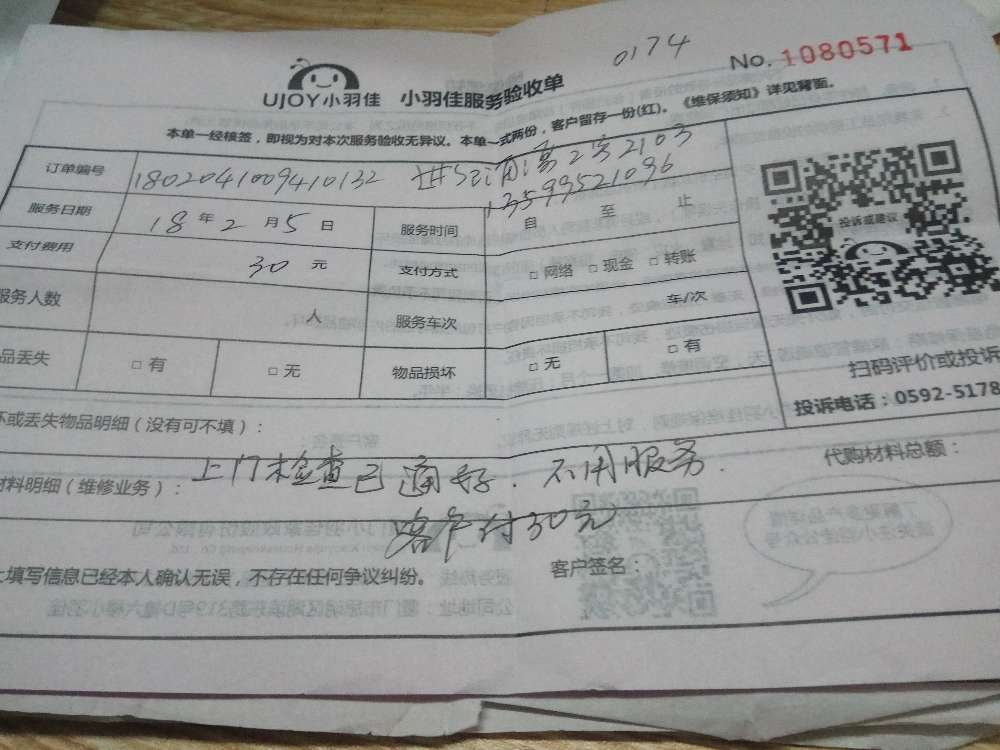 0174
No. 1080571
UJOY小羽佳 小羽佳服务验收单
本单一经核签，即视为对本次服务验收无异议。本单一式两份，客户留存一份(红)。《维保须知》详见背面。
订单编号 1802041009410132 2103
13599521096
服务日期 18年2月5日 服务时间 自 至 止
支付费用 30元 支付方式 □网络 □现金 □转账
服务人数 人 服务车次 车/次
品丢失 □有 □无 物品损坏 □无 □有
投诉或建议
扫码评价或投诉
投诉电话：0592-5178
坏或丢失物品明细（没有可不填）：
材料明细（维修业务）：上门检查已通好．不用服务． 代购材料总额：
客户付30元
上填写信息已经本人确认无误，不存在任何争议纠纷。 客户签名：